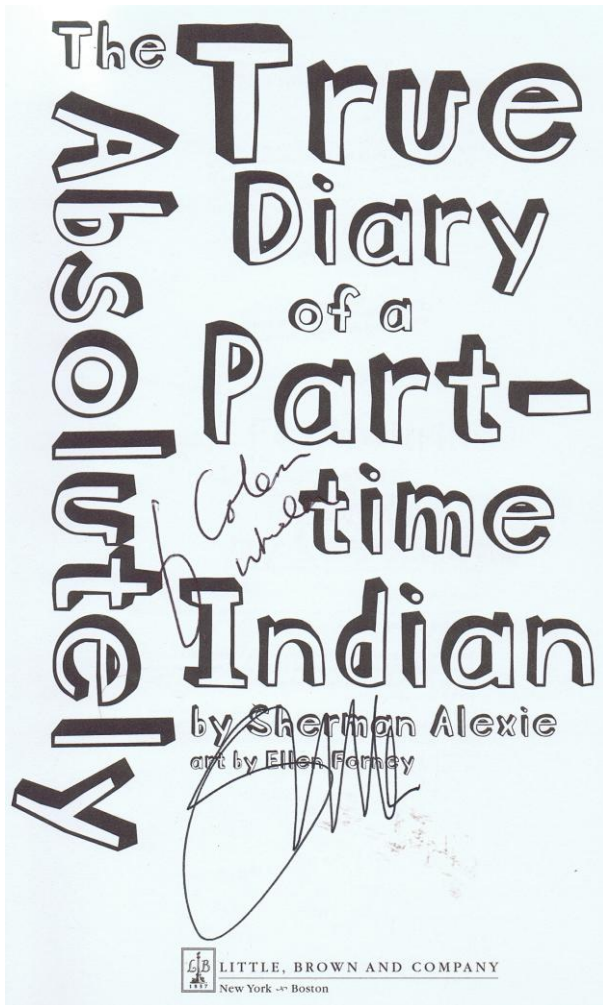 The
Absolutely
True
Diary
of a
Part-
time
Indian
by Sherman Alexie
art by Ellen Forney
LB
1837
LITTLE, BROWN AND COMPANY
New York Boston